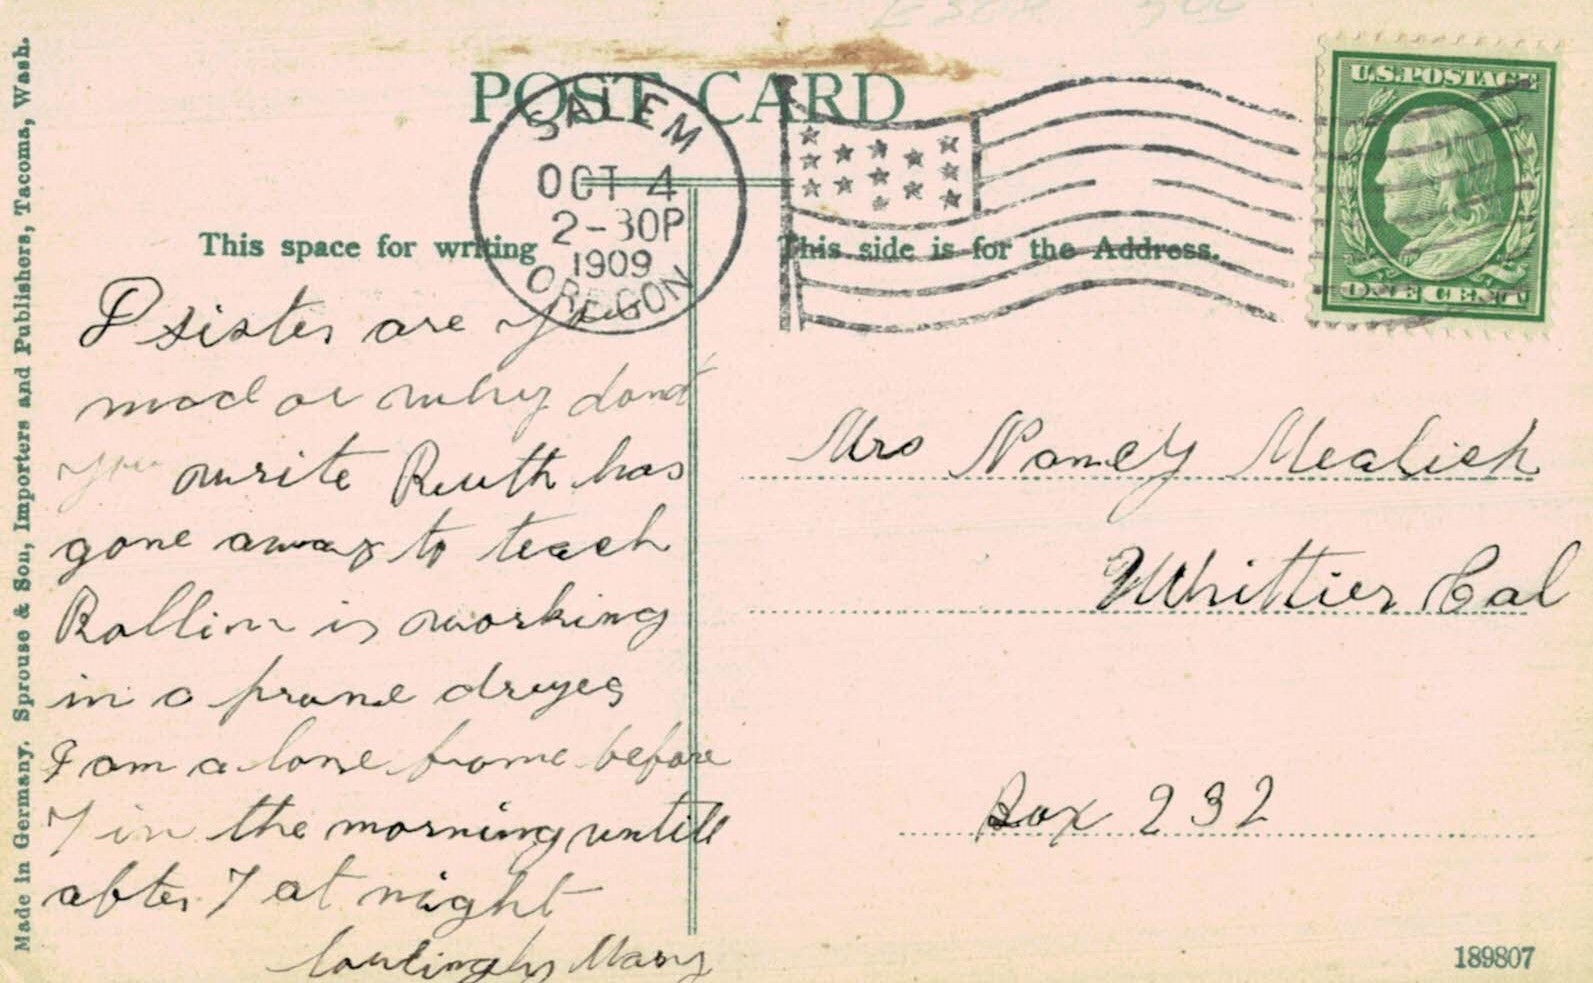 POST CARD
SALEM
OCT 4
2-30P
1909
OREGON
U.S. POSTAGE
ONE CENT
This space for writing
This side is for the Address.
D sister are you
mad or why dont
you write Ruth has
gone away to teach
Rollin is working
in a prune dryer
I am alone frome before
7 in the morning untill
after 7 at night
Lovingly Mary
Mrs Nancy
Whittier Cal
Box 232
Made in Germany. Sprouse & Son, Importers and Publishers, Tacoma, Wash.
189807